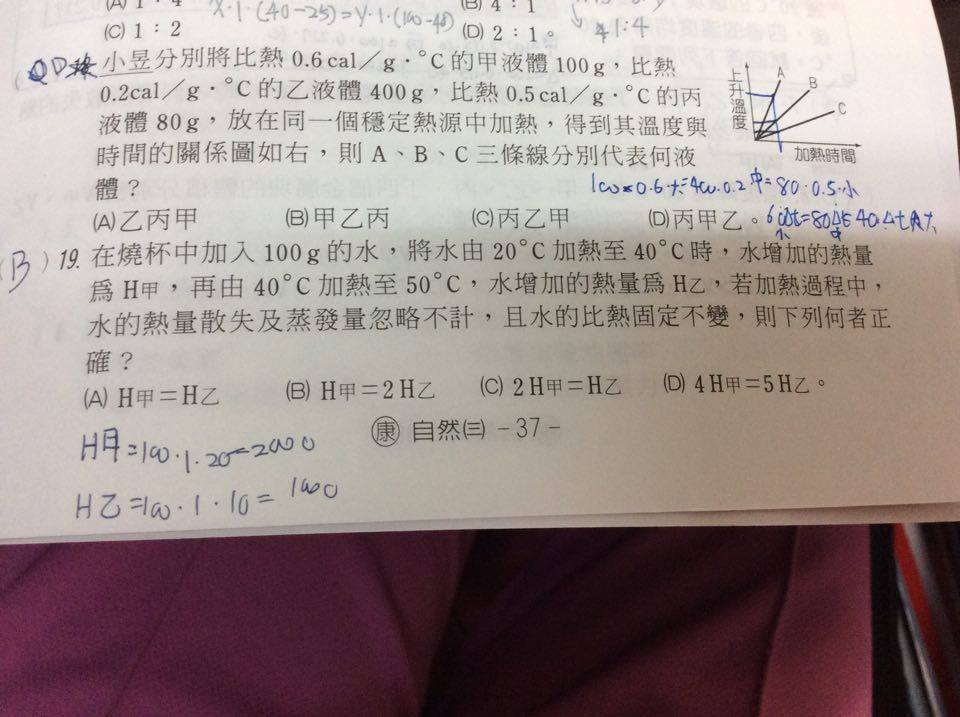 (A) 1：4
X·1·(40-25)=Y·1·(100-40)
(B) 4：1
(C) 1：2
(D) 2：1。
1:4
小昱分別將比熱 0.6 cal／g·°C 的甲液體 100 g，比熱
0.2cal／g·°C 的乙液體 400 g，比熱 0.5 cal／g·°C 的丙
液體 80 g，放在同一個穩定熱源中加熱，得到其溫度與
時間的關係圖如右，則 A、B、C 三條線分別代表何液
體？
上升溫度
A
B
C
加熱時間
100×0.6·大=400·0.2·中=80·0.5·小
(A)乙丙甲 (B)甲乙丙 (C)丙乙甲 (D)丙甲乙。
(B) 19. 在燒杯中加入 100 g 的水，將水由 20°C 加熱至 40°C 時，水增加的熱量
為 H甲，再由 40°C 加熱至 50°C，水增加的熱量為 H乙，若加熱過程中，
水的熱量散失及蒸發量忽略不計，且水的比熱固定不變，則下列何者正
確？
(A) H甲＝H乙 (B) H甲＝2 H乙 (C) 2 H甲＝H乙 (D) 4 H甲＝5 H乙。
康 自然(三) －37－
H甲=100·1·20=2000
H乙=100·1·10=1000